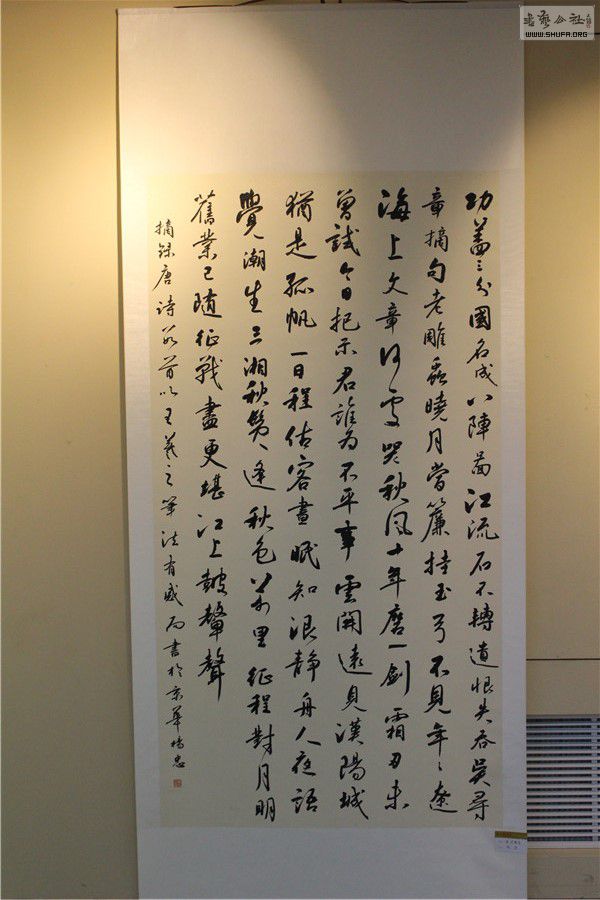 書藝公社
WWW.SHUFA.ORG
功蓋三分國名成八陣圖江流石不轉遺恨失吞吳尋
章摘句老雕蟲曉月當簾挂玉弓不見年〻遼
海上文章何處哭秋風十年磨一劍霜刃未
曾試今日把示君誰為不平事雲開遠見漢陽城
猶是孤帆一日程估客晝眠知浪靜舟人夜語
覺潮生三湘秋鬢逢秋色萬里征程對月明
舊業已隨征戰盡更堪江上鼓鼙聲
摘錄唐詩數首以王羲之筆法有感而書於京華